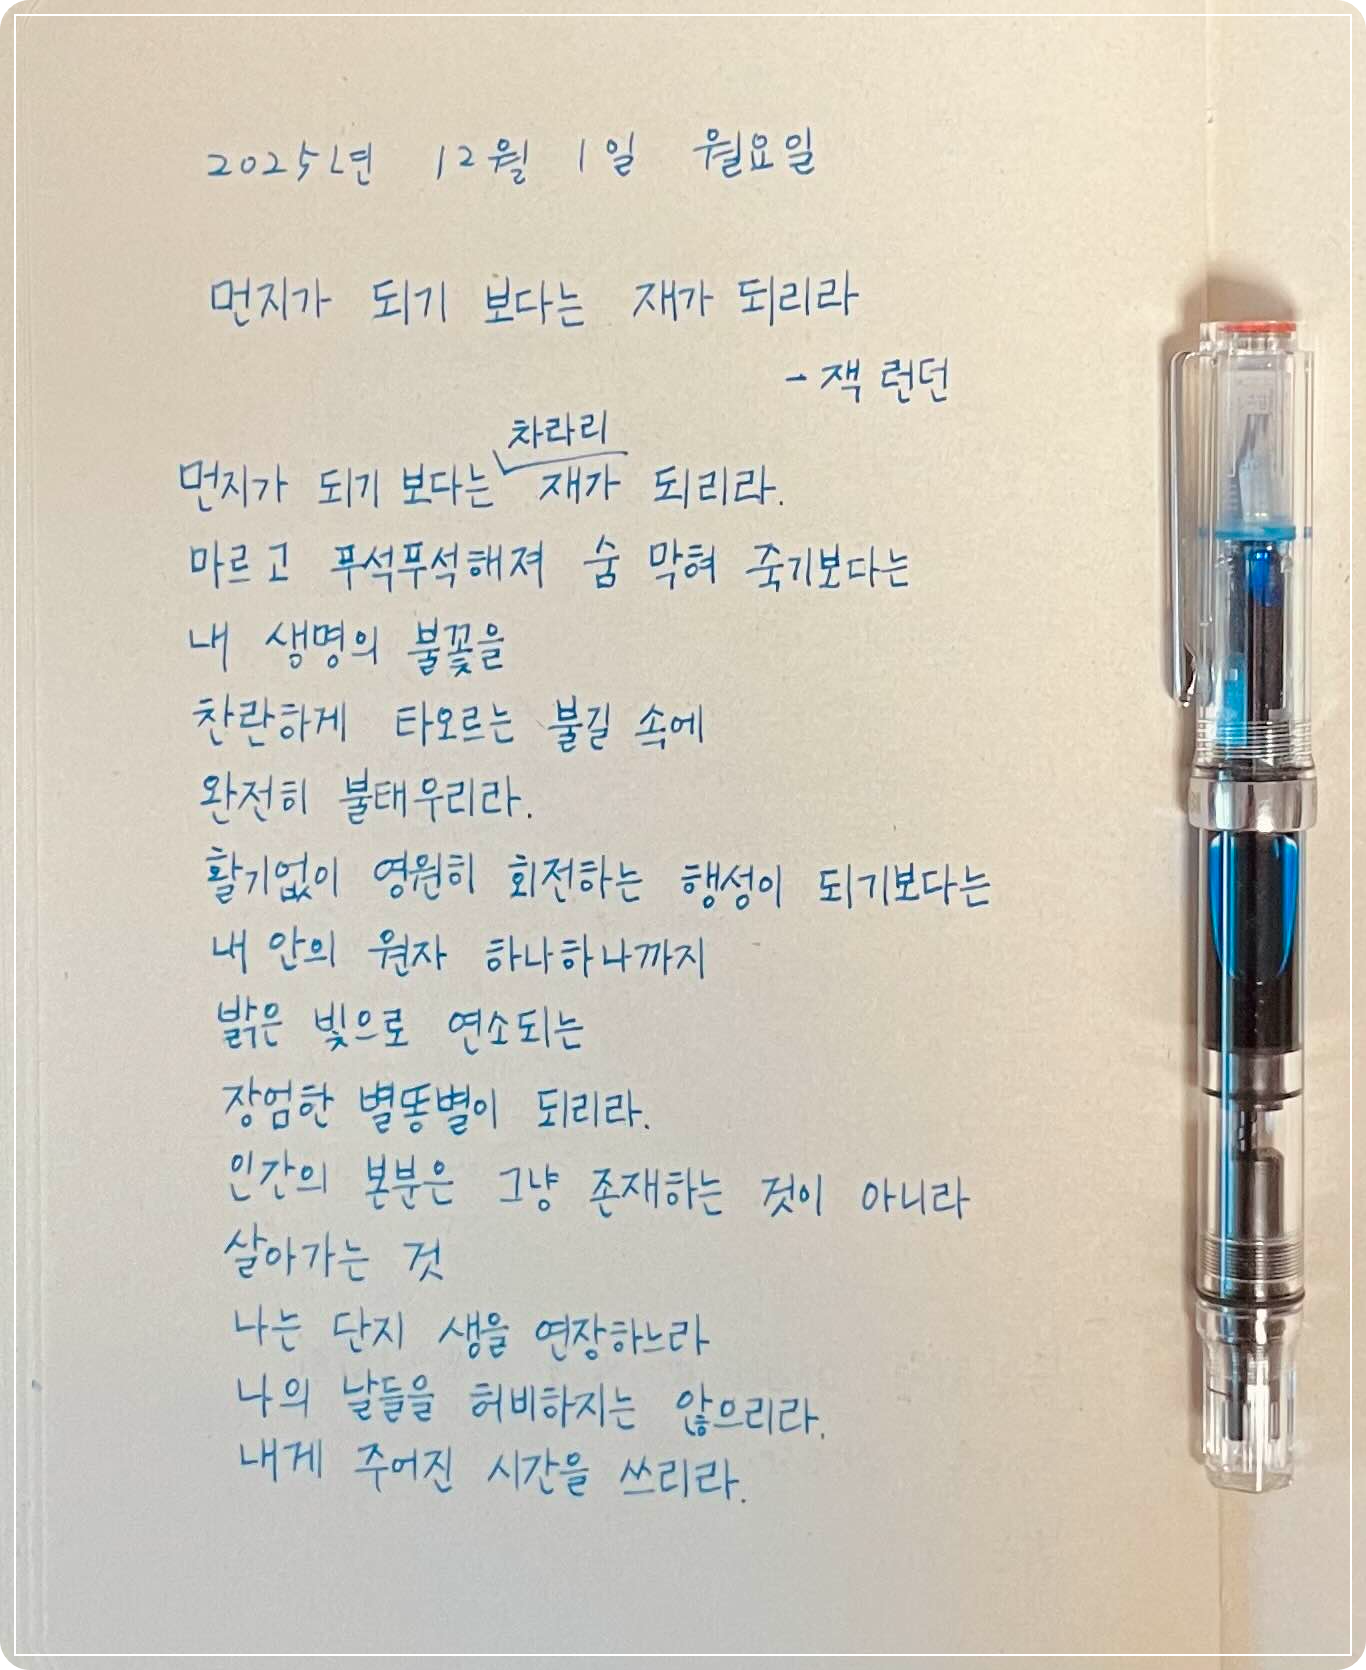 2025년 12월 1일 월요일
먼지가 되기 보다는 재가 되리라
- 잭 런던
차라리
먼지가 되기 보다는 재가 되리라.
마르고 푸석푸석해져 숨 막혀 죽기보다는
내 생명의 불꽃을
찬란하게 타오르는 불길 속에
완전히 불태우리라.
활기없이 영원히 회전하는 행성이 되기보다는
내 안의 원자 하나하나까지
밝은 빛으로 연소되는
장엄한 별똥별이 되리라.
인간의 본분은 그냥 존재하는 것이 아니라
살아가는 것
나는 단지 생을 연장하느라
나의 날들을 허비하지는 않으리라.
내게 주어진 시간을 쓰리라.